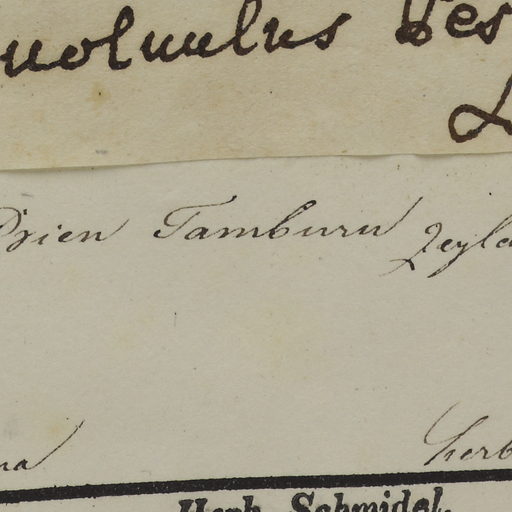 nvolvulus Pes
L
Prien Tamburu Zeyla
na herb
Herb. Schmidel.